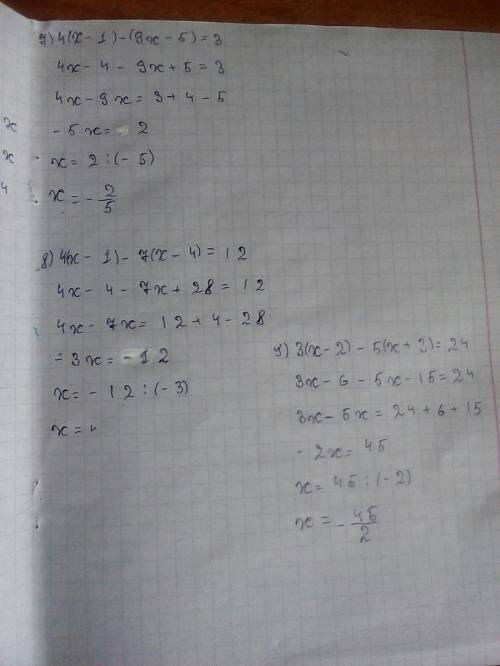 7) 4(x - 1) - (9x - 5) = 3
4x - 4 - 9x + 5 = 3
4x - 9x = 3 + 4 - 5
- 5x = 2
x = 2 : (- 5)
x = - 2/5
8) 4(x - 1) - 7(x - 4) = 12
4x - 4 - 7x + 28 = 12
4x - 7x = 12 + 4 - 28
- 3x = - 12
x = - 12 : (- 3)
x = 4
9) 3(x - 2) - 5(x + 3) = 24
3x - 6 - 5x - 15 = 24
3x - 5x = 24 + 6 + 15
- 2x = 45
x = 45 : (- 2)
x = - 45/2
x
x
4